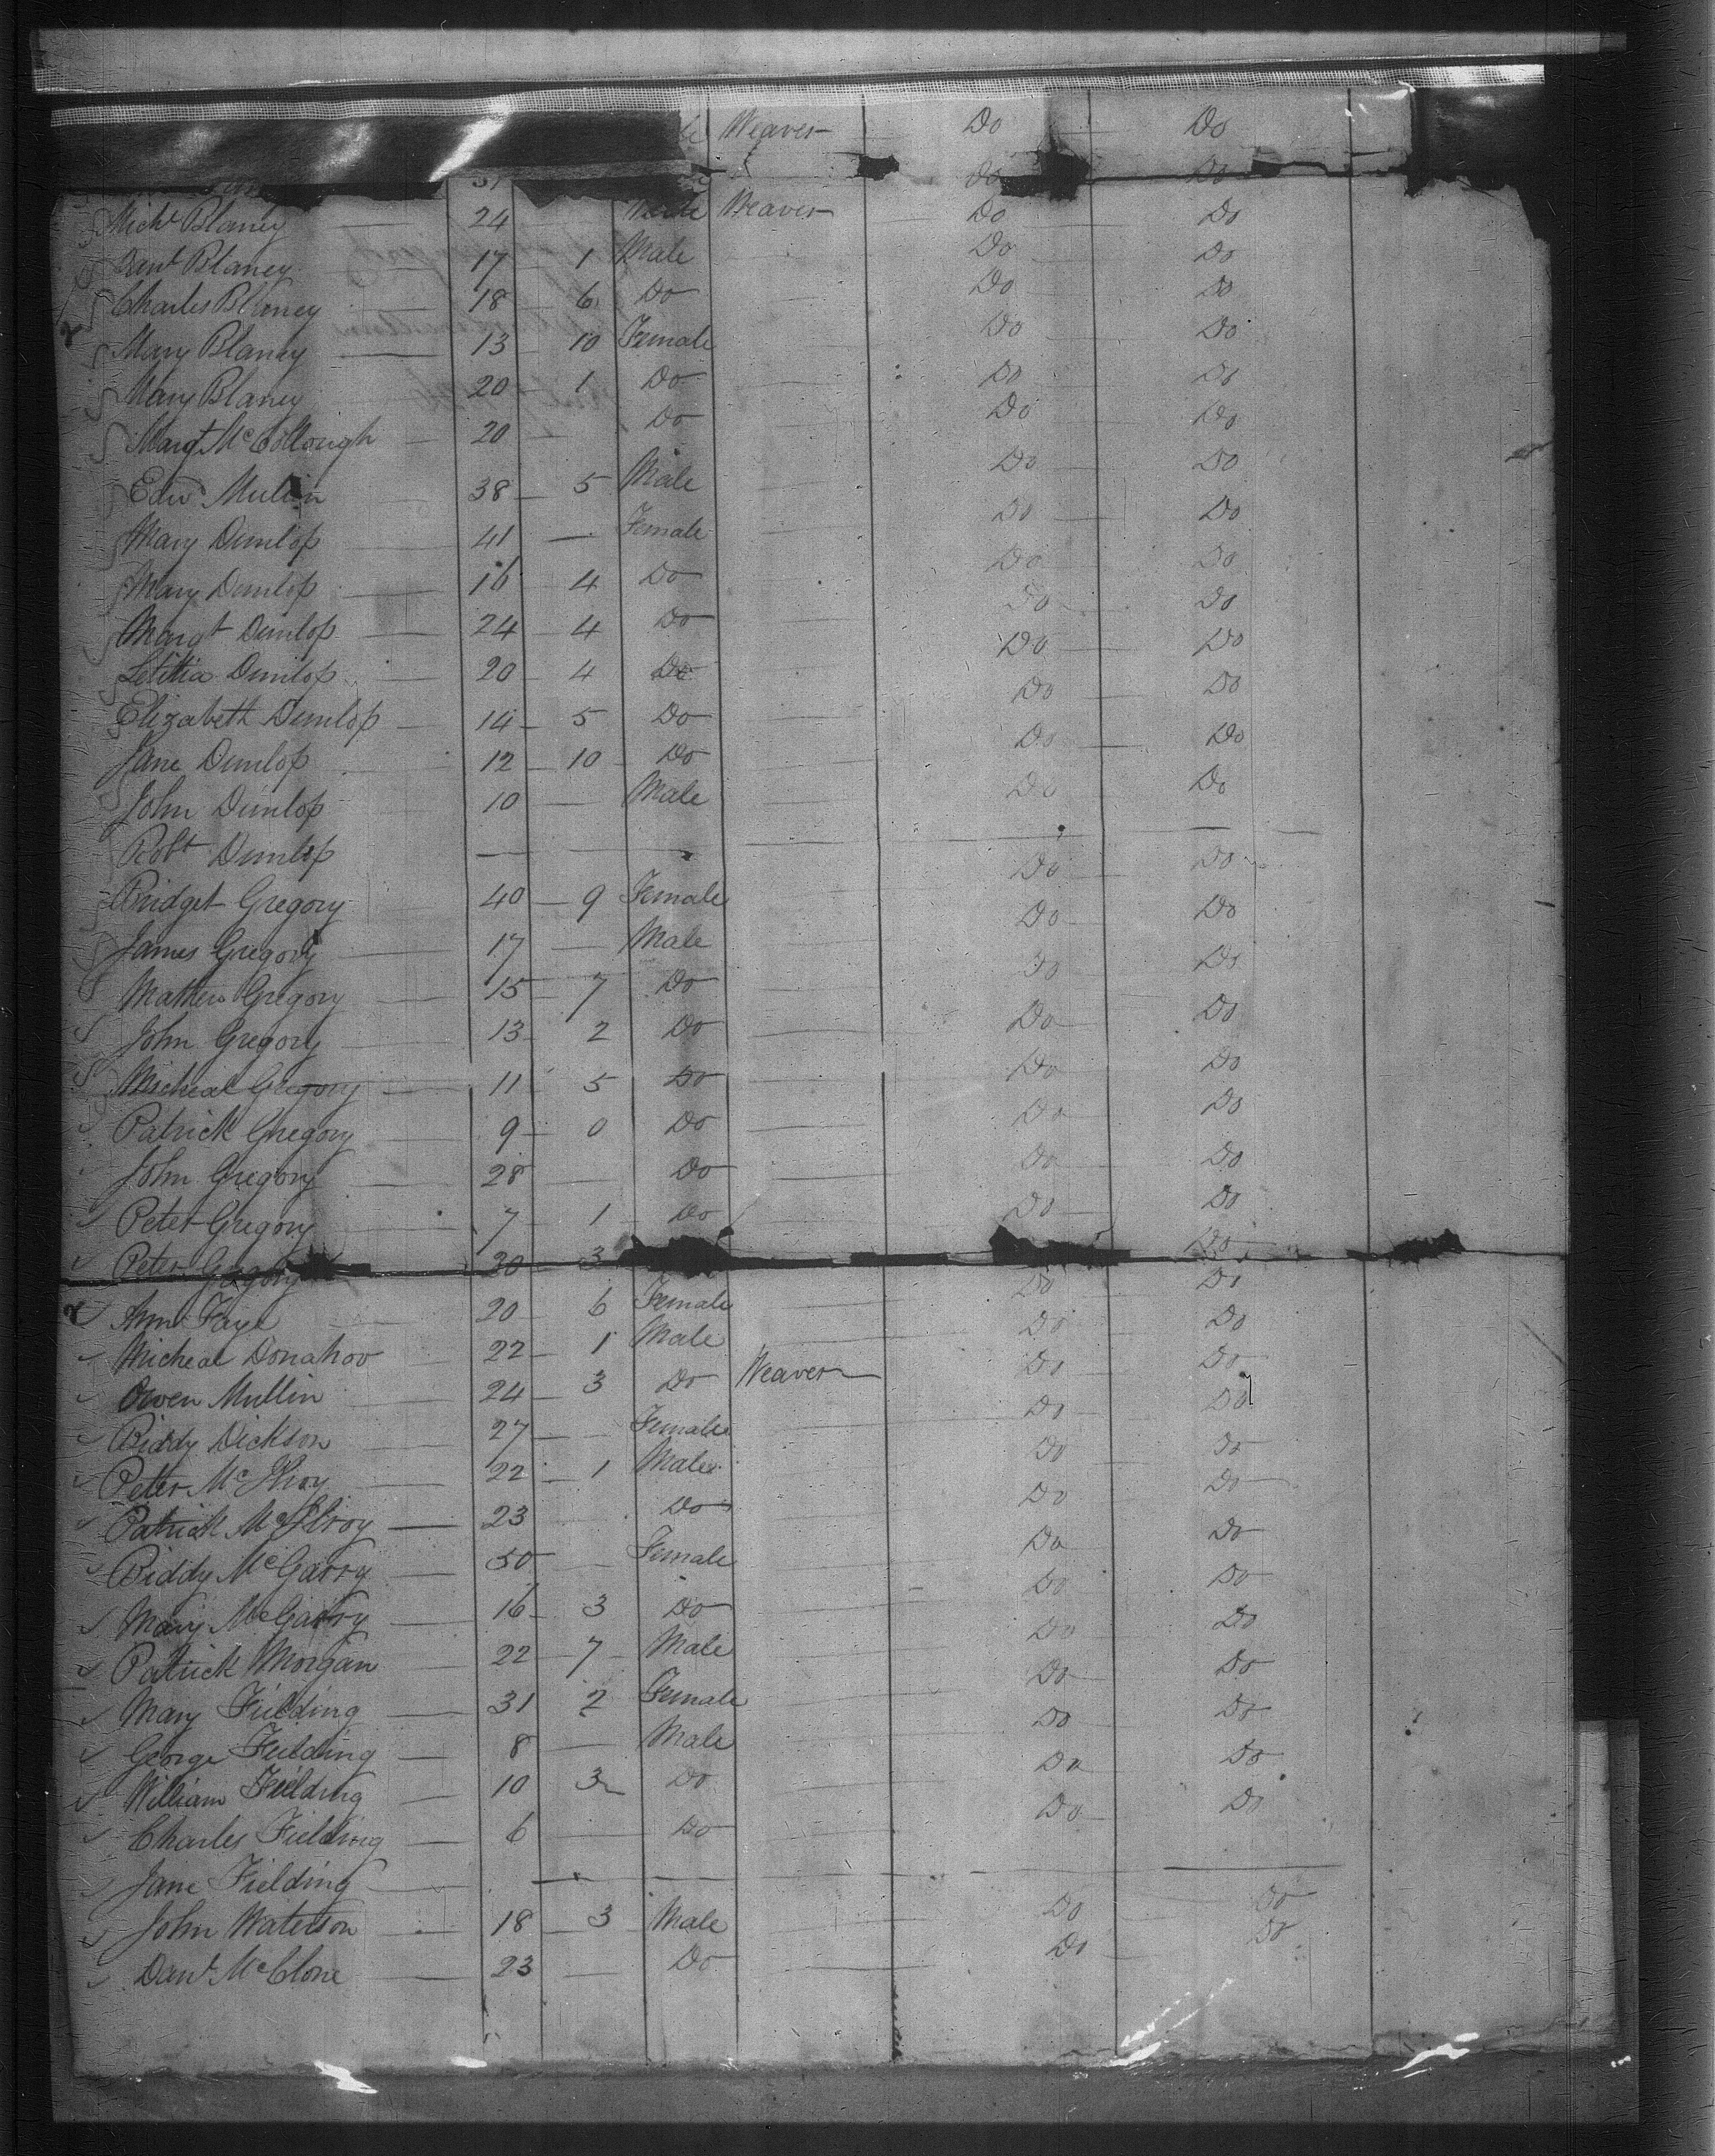 Weaver Do Do
31 Do Do
Mich^l Blaney 24 Male Weaver Do Do
Dan^l Blaney 17 1 Male Do Do
Charles Blaney 18 6 Do Do Do
Mary Blaney 13 10 Female Do Do
Mary Blaney 20 1 Do Do Do
Marg^t M^cCollough 20 Do Do Do
Edw^d Mullin 38 5 Male Do Do
Mary Dunlop 41 Female Do Do
Mary Dunlop 16 4 Do Do Do
Marg^t Dunlop 24 4 Do Do Do
Letitia Dunlop 20 4 Do Do Do
Elizabeth Dunlop 14 5 Do Do Do
Jane Dunlop 12 10 Do Do Do
John Dunlop 10 Male Do Do
Rob^t Dunlop
Bridget Gregory 40 9 Female Do Do
James Gregory 17 Male Do Do
Mathew Gregory 15 7 Do Do Do
John Gregory 13 2 Do Do Do
Micheal Gregory 11 5 Do Do Do
Patrick Gregory 9 0 Do Do Do
John Gregory 28 Do Do Do
Peter Gregory 7 1 Do Do Do
Peter Gregory 30 3 Do
Ann Faye 20 6 Female Do Do
Micheal Donahoo 22 1 Male Do Do
Owen Mullin 24 3 Do Weaver Do Do
Biddy Dickson 27 Female Do Do
Peter M^cIlroy 22 1 Male Do Do
Patrick M^cIlroy 23 Do Do Do
Biddy M^cGarry 50 Female Do Do
Mary M^cGarry 16 3 Do Do Do
Patrick Morgan 22 7 Male Do Do
Mary Fielding 31 2 Female Do Do
George Fielding 8 Male Do Do
William Fielding 10 3 Do Do Do
Charles Fielding 6 Do Do Do
Jane Fielding
John Waterson 18 3 Male Do Do
Dan^l M^cClone 23 Do Do Do